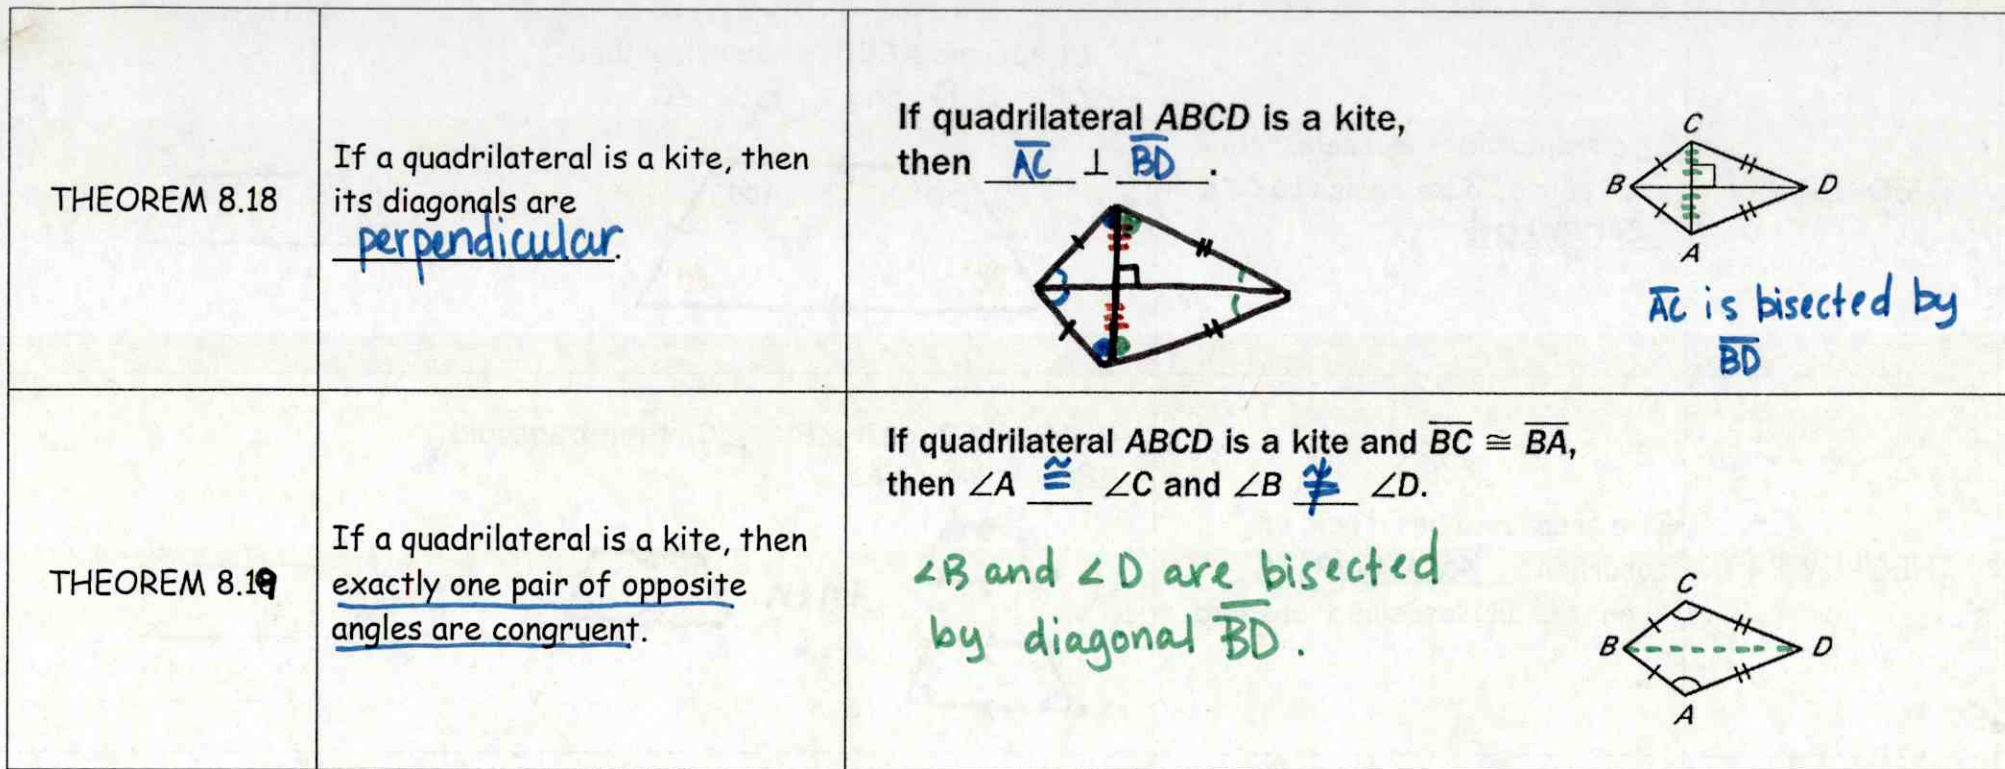 THEOREM 8.18
If a quadrilateral is a kite, then
its diagonals are
perpendicular.
If quadrilateral ABCD is a kite,
then AC ⊥ BD.
C
B
D
A
AC is bisected by
BD
THEOREM 8.19
If a quadrilateral is a kite, then
exactly one pair of opposite
angles are congruent.
If quadrilateral ABCD is a kite and BC ≅ BA,
then ∠A ≅ ∠C and ∠B ≇ ∠D.
∠B and ∠D are bisected
by diagonal BD.
C
B
D
A